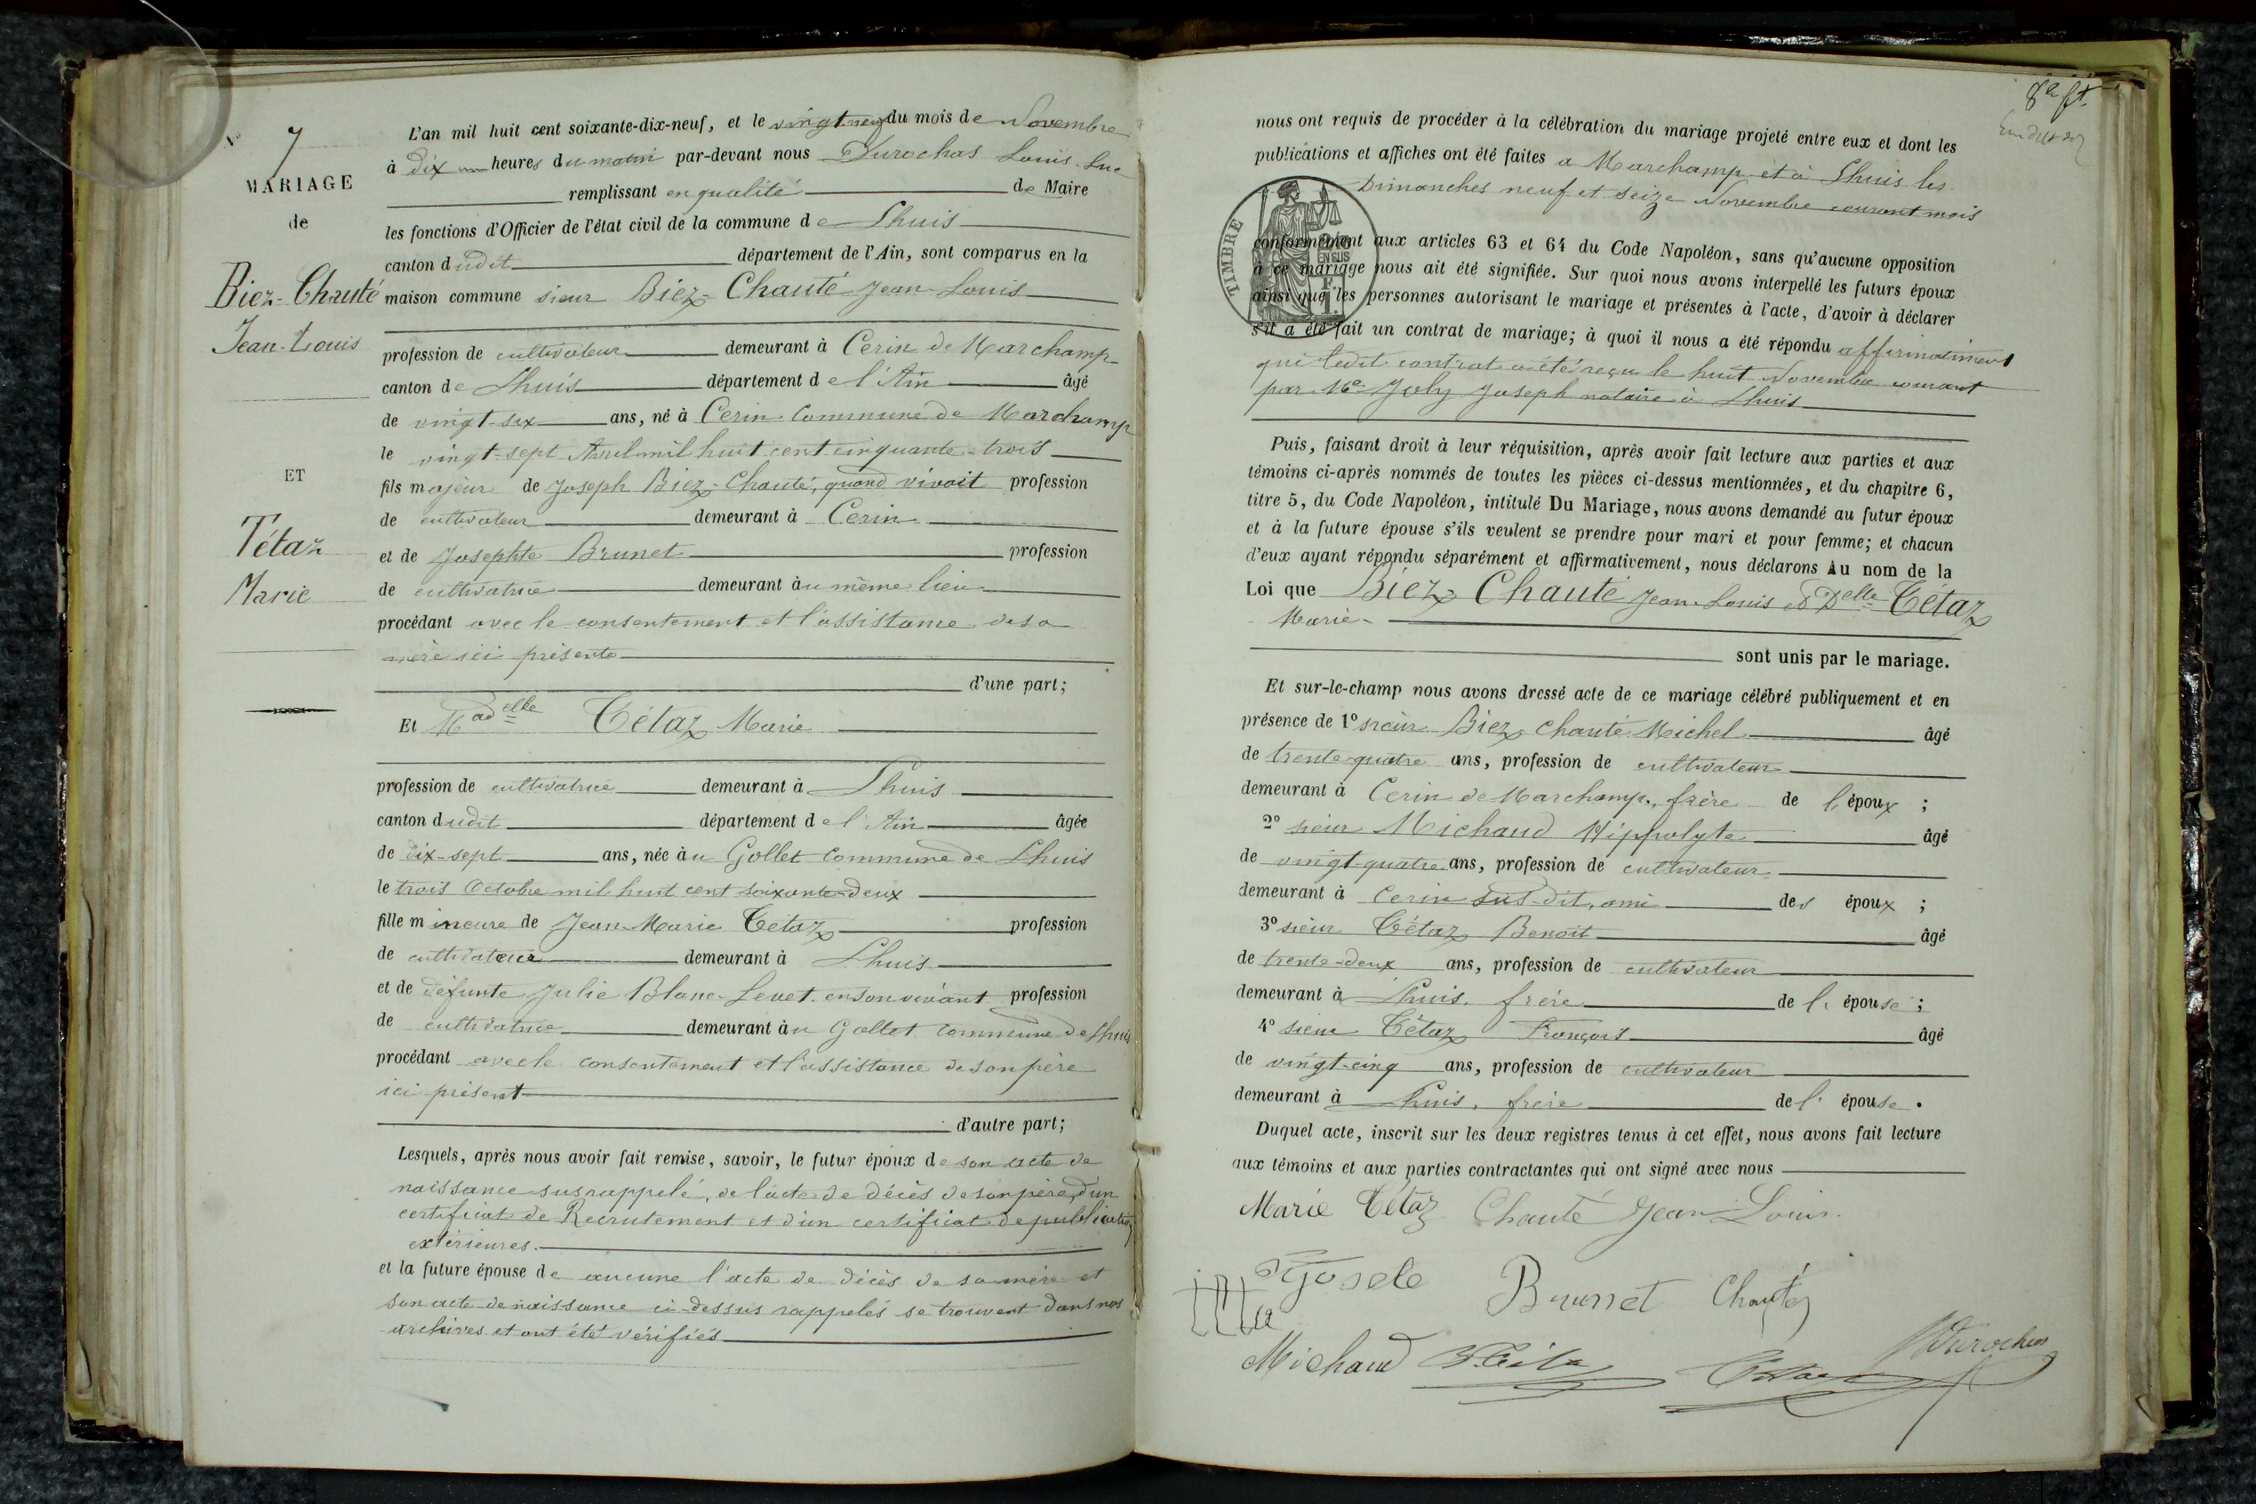 7
MARIAGE
de
Biez-Chanté
Jean-Louis
ET
Tétaz
Marie
L'an mil huit cent soixante-dix-neuf, et le vingt-neuf du mois de Novembre
à dix heures du matin par-devant nous Durochas Louis Luc
remplissant en qualité de Maire
les fonctions d'Officier de l'état civil de la commune de Lhuis
canton dudit département de l'Ain, sont comparus en la
maison commune sieur Biez-Chanté Jean Louis
profession de cultivateur demeurant à Cerin de Marchamp
canton de Lhuis département de l'Ain âgé
de vingt-six ans, né à Cerin commune de Marchamp
le vingt-sept Avril mil huit cent cinquante-trois
fils majeur de Joseph Biez-Chanté, quand vivait profession
de cultivateur demeurant à Cerin
et de Josephte Brunet profession
de cultivatrice demeurant au même lieu
procédant avec le consentement et l'assistance de sa
mère ici présente
d'une part;
Et Madelle Tétaz Marie
profession de cultivatrice demeurant à Lhuis
canton dudit département de l'Ain âgée
de dix-sept ans, née au Gollet commune de Lhuis
le trois Octobre mil huit cent soixante-deux
fille mineure de Jean Marie Tétaz profession
de cultivateur demeurant à Lhuis
et de défunte Julie Blanc-Levet en son vivant profession
de cultivatrice demeurant au Gollet commune de Lhuis
procédant avec le consentement et l'assistance de son père
ici présent
d'autre part;
Lesquels, après nous avoir fait remise, savoir, le futur époux de son acte de
naissance susrappelé, de l'acte de décès de son père, d'un
certificat de Recrutement et d'un certificat de publications
extérieures.
et la future épouse de aucune l'acte de décès de sa mère et
son acte de naissance ci-dessus rappelés se trouvent dans nos
archives et ont été vérifiés
nous ont requis de procéder à la célébration du mariage projeté entre eux et dont les
publications et affiches ont été faites à Marchamp et à Lhuis les
Dimanches neuf et seize Novembre courant mois
TIMBRE
conformément aux articles 63 et 64 du Code Napoléon, sans qu'aucune opposition
à ce mariage nous ait été signifiée. Sur quoi nous avons interpellé les futurs époux
ainsi que les personnes autorisant le mariage et présentes à l'acte, d'avoir à déclarer
s'il a été fait un contrat de mariage; à quoi il nous a été répondu affirmativement
que ledit contrat a été reçu le huit Novembre courant
par Me Joly Joseph notaire à Lhuis
Puis, faisant droit à leur réquisition, après avoir fait lecture aux parties et aux
témoins ci-après nommés de toutes les pièces ci-dessus mentionnées, et du chapitre 6,
titre 5, du Code Napoléon, intitulé Du Mariage, nous avons demandé au futur époux
et à la future épouse s'ils veulent se prendre pour mari et pour femme; et chacun
d'eux ayant répondu séparément et affirmativement, nous déclarons Au nom de la
Loi que Biez-Chanté Jean-Louis & Delle Tétaz
Marie
sont unis par le mariage.
Et sur-le-champ nous avons dressé acte de ce mariage célébré publiquement et en
présence de 1º sieur Biez-Chanté Michel âgé
de trente-quatre ans, profession de cultivateur
demeurant à Cerin de Marchamp, frère de l'époux ;
2º sieur Michaud Hippolyte âgé
de vingt-quatre ans, profession de cultivateur
demeurant à Cerin sus-dit, ami des époux ;
3º sieur Tétaz Benoit âgé
de trente-deux ans, profession de cultivateur
demeurant à Lhuis, frère de l'épouse ;
4º sieur Tétaz François âgé
de vingt-cinq ans, profession de cultivateur
demeurant à Lhuis, frère de l'épouse.
Duquel acte, inscrit sur les deux registres tenus à cet effet, nous avons fait lecture
aux témoins et aux parties contractantes qui ont signé avec nous
Marie Tétaz Chanté Jean Louis
Brunet Chanté
Michaud
Durochas